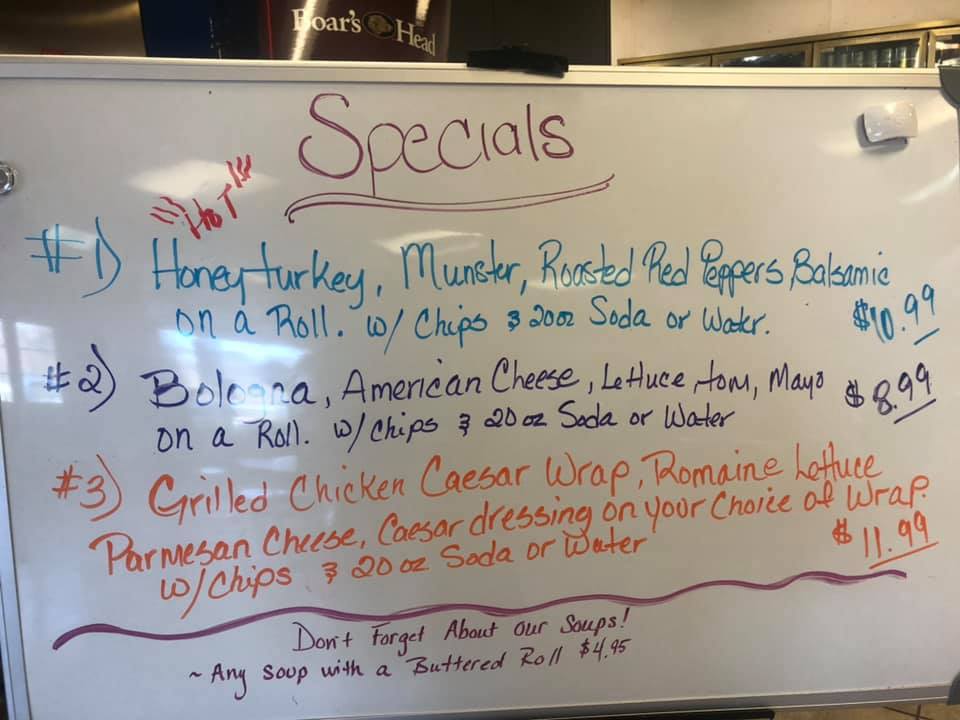 Boar's Head
Specials
HOT
#1) Honey turkey, Munster, Roasted Red Peppers, Balsamic
on a Roll. w/ Chips & 20oz Soda or Water. $10.99
#2) Bologna, American Cheese, Lettuce, tom, Mayo $8.99
on a Roll. w/ chips & 20 oz Soda or Water
#3) Grilled Chicken Caesar Wrap, Romaine Lettuce
Parmesan Cheese, Caesar dressing on your Choice of Wrap.
w/ Chips & 20 oz Soda or Water $11.99
Don't Forget About Our Soups!
~ Any Soup with a Buttered Roll $4.95